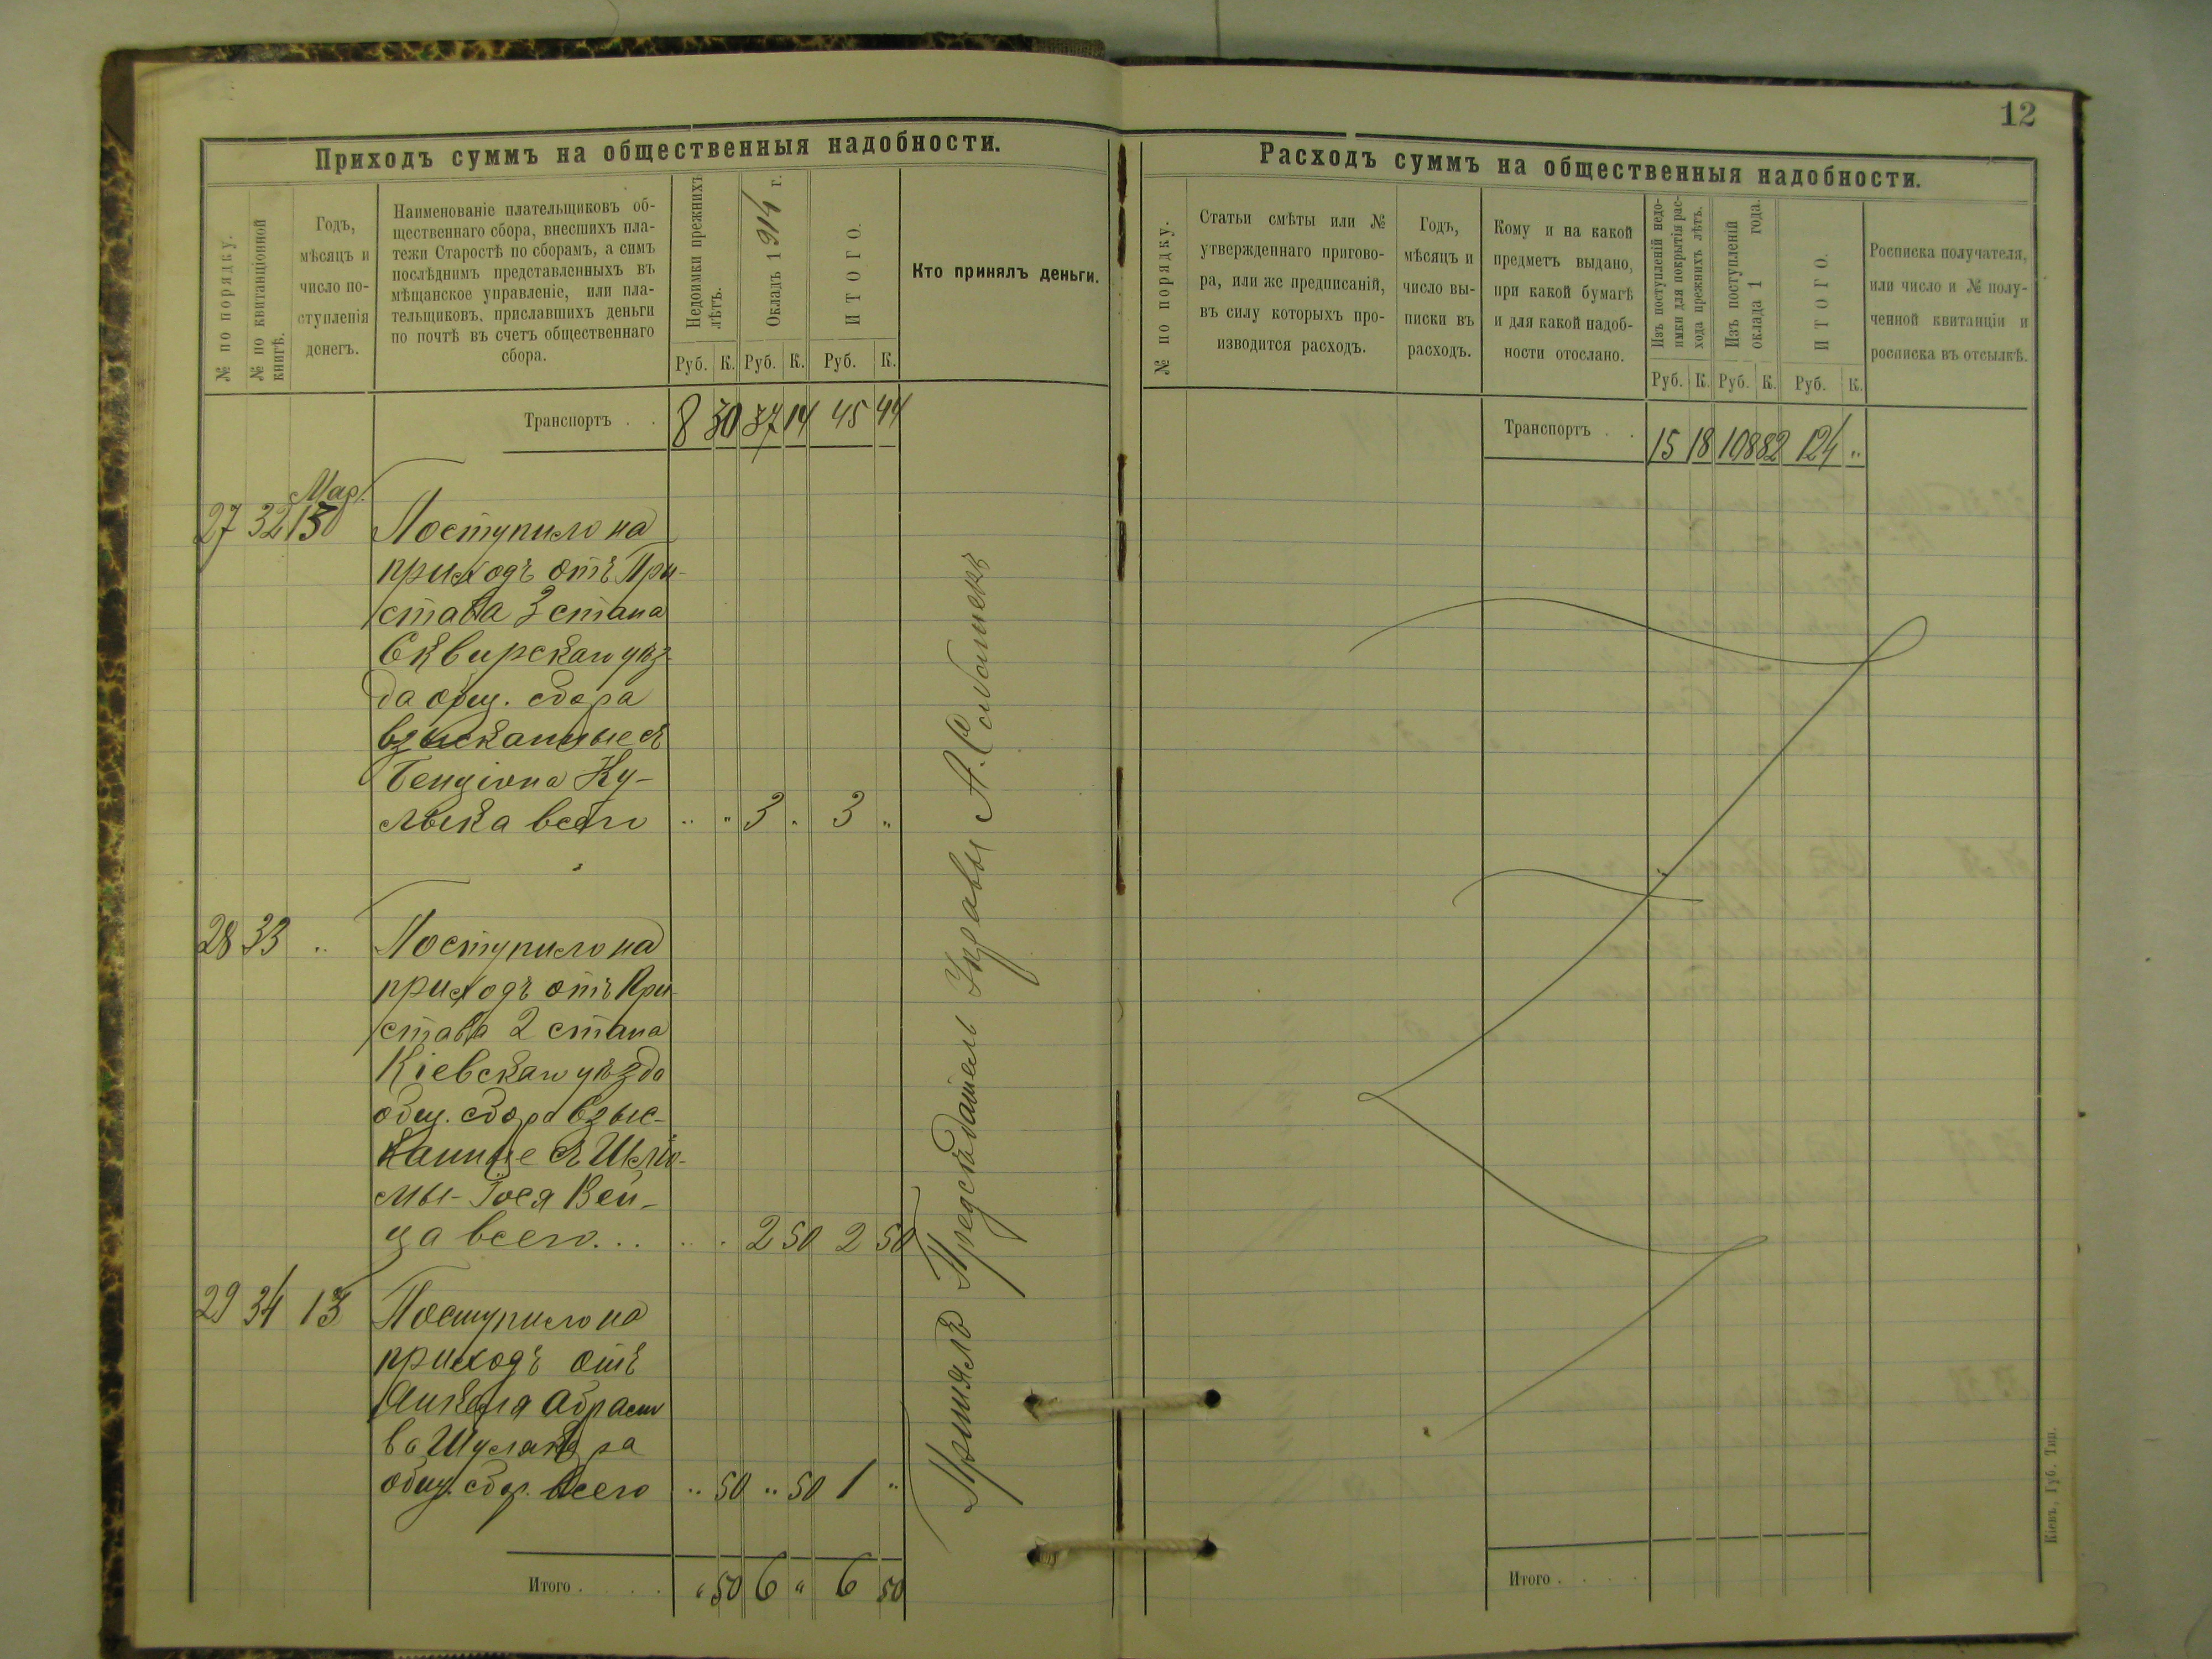 12
Приходъ суммъ на общественныя надобности.
№ по порядку.
№ по квитанціонной
книгѣ.
Годъ,
мѣсяцъ и
число по-
ступленія
денегъ.
Наименованіе плательщиковъ об-
щественнаго сбора, внесшихъ пла-
тежи Старостѣ по сборамъ, а симъ
послѣднимъ представленныхъ въ
мѣщанское управленіе, или пла-
тельщиковъ, приславшихъ деньги
по почтѣ въ счетъ общественнаго
сбора.
Недоимки прежнихъ
лѣтъ.
Окладъ 1914 г.
ИТОГО.
Руб. К. Руб. К. Руб. К.
Кто принялъ деньги.
Транспортъ . . 8 30 37 14 45 44
Мар.
27 32 13
Поступило на
приходъ отъ При-
става 3 стана
Сквирскаго уѣз-
да общ. сбора
взысканные съ
Бенціона Ку-
лыка всего " " 3 " 3 "
28 33 "
Поступило на
приходъ отъ При-
става 2 стана
Кіевскаго уѣзда
общ. сбора взыс-
канные съ Шлио-
мы-Іося Вей-
ца всего... " " 2 50 2 50
29 34 13
Поступило на
приходъ отъ
Янкеля
общ. сбор. всего " 50 " 50 1 "
Итого . . . . " 50 6 " 6 50
Принялъ Предсѣдатель Управы А.
Расходъ суммъ на общественныя надобности.
№ по порядку.
Статьи смѣты или №
утвержденнаго пригово-
ра, или же предписаній,
въ силу которыхъ про-
изводится расходъ.
Годъ,
мѣсяцъ и
число вы-
писки въ
расходъ.
Кому и на какой
предметъ выдано,
при какой бумагѣ
и для какой надоб-
ности отослано.
Изъ поступленій недо-
имки для покрытія рас-
хода прежнихъ лѣтъ.
Изъ поступленій
оклада 1 года.
ИТОГО.
Руб. К. Руб. К. Руб. К.
Росписка получателя,
или число и № полу-
ченной квитанціи и
росписка въ отсылкѣ.
Транспортъ . . 15 18 108 82 124 "
Итого . . . .
Кіевъ, Губ. Тип.